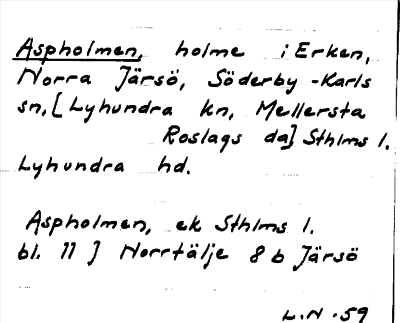 Aspholmen, holme i Erken,
Norra Järsö, Söderby-Karls
sn. [Lyhundra kn, Mellersta
Roslags da] Sthlms l.
Lyhundra hd.
Aspholmen, ek Sthlms l.
bl. 11 J Norrtälje 8 b Järsö
L.N. 59